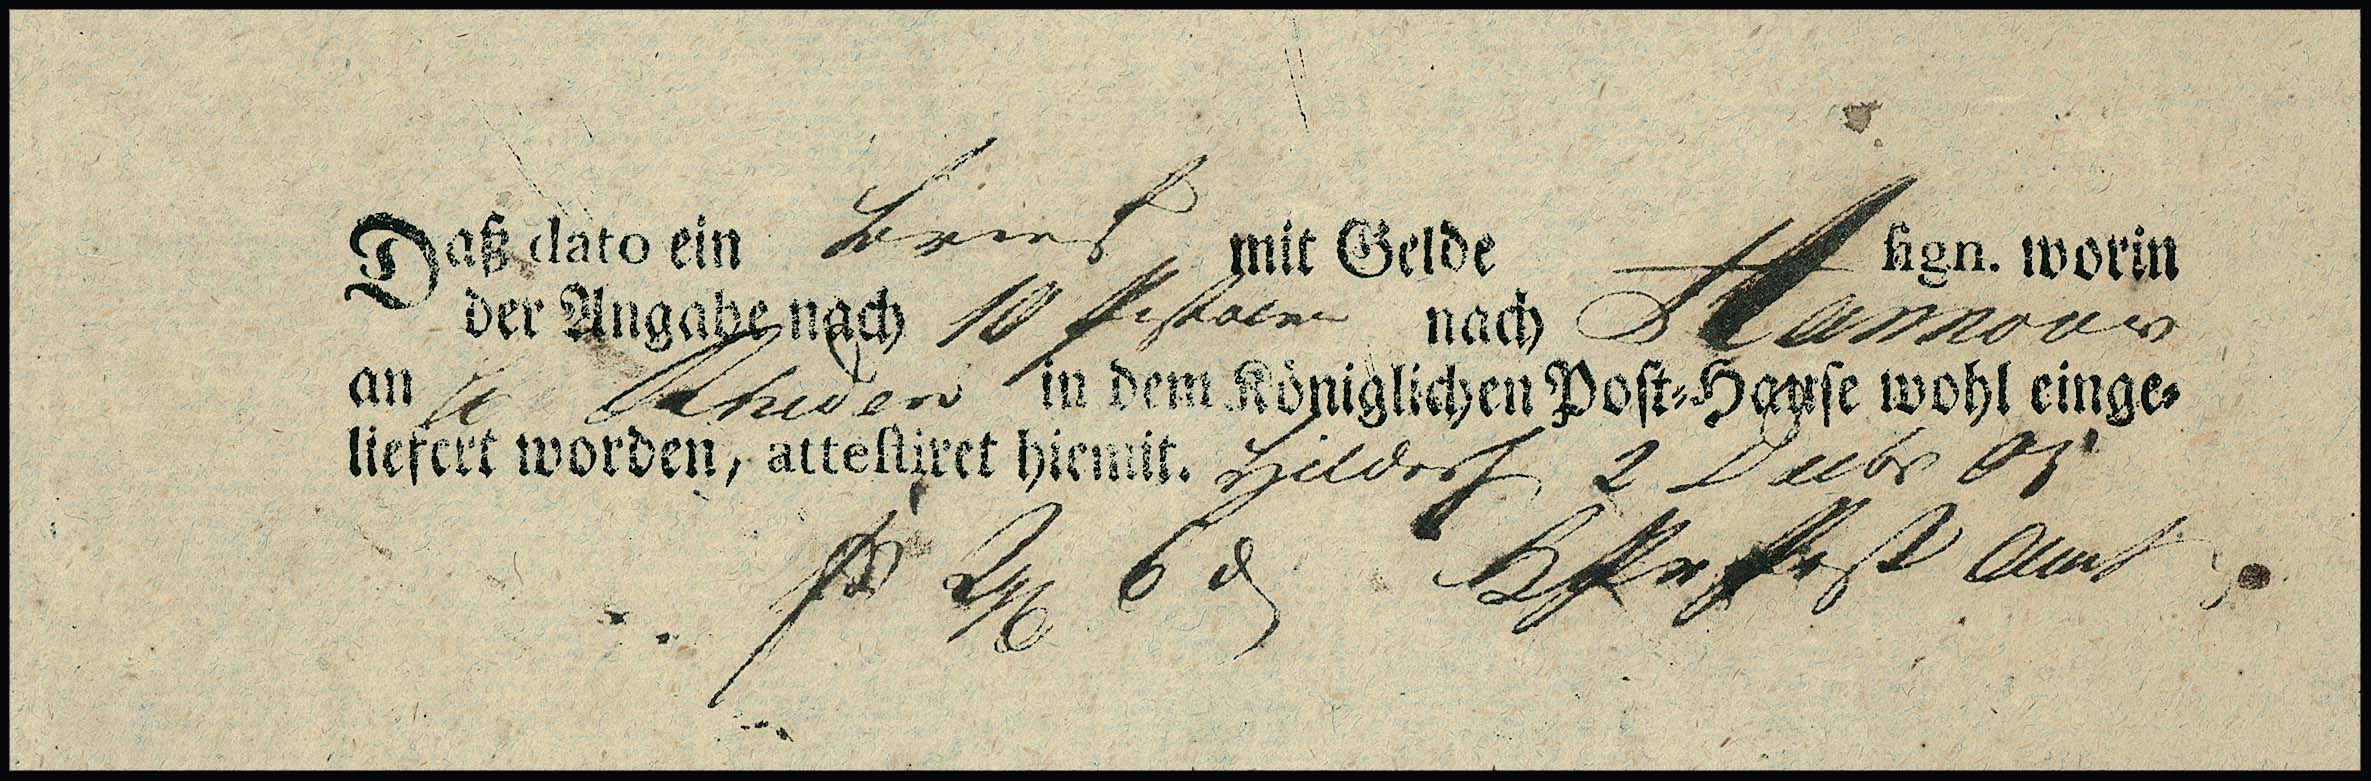 Daß dato ein Brief mit Gelde sign. worin
der Angabe nach 10 Pistolen nach Hannover
an in dem Königlichen Post-Hause wohl einge-
liefert worden, attestiret hiemit. Hildesh 2 Decbr 05
6 Post Amt